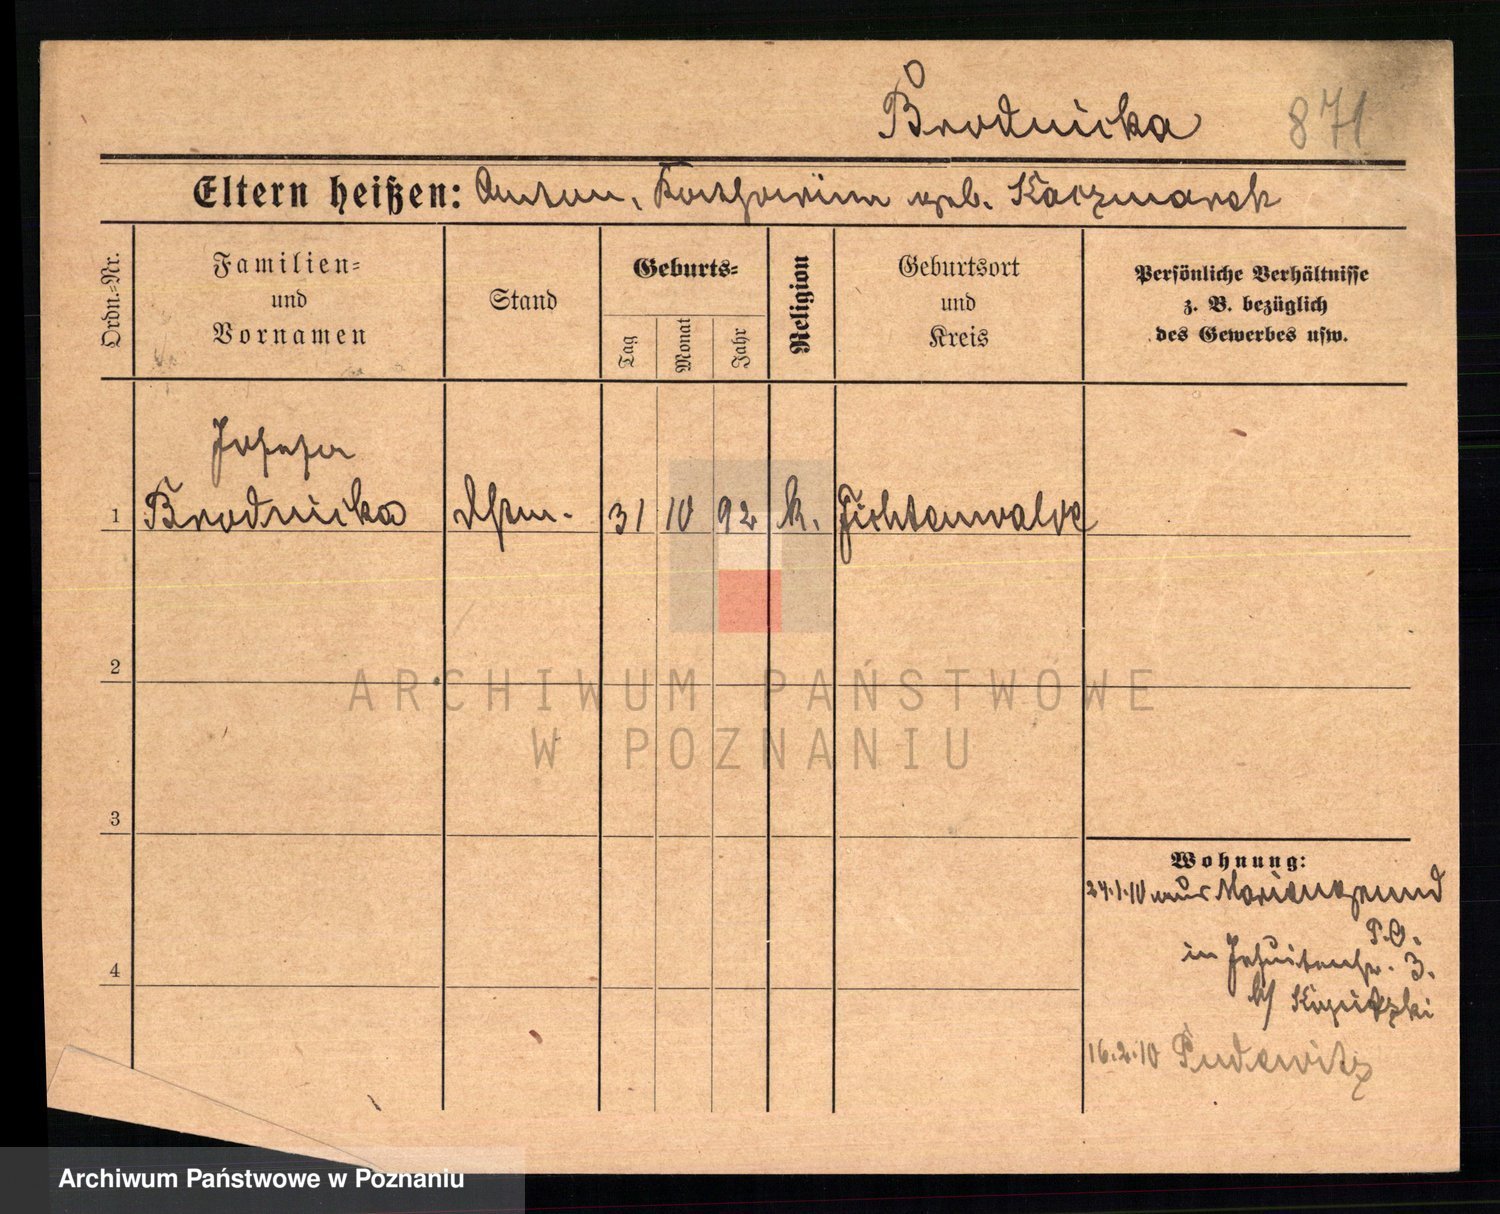 Brodnicka 871
Eltern heißen: Anton, Katharina geb. Kaczmarek
Ordn.-Nr.
Familien-
und
Vornamen
Stand
Geburts-
Tag
Monat
Jahr
Religion
Geburtsort
und
Kreis
Persönliche Verhältnisse
z. B. bezüglich
des Gewerbes usw.
Josefa
1 Brodnicka 31 10 92 k. Fichtenwalde
2
ARCHIWUM PAŃSTWOWE
W POZNANIU
3
4
Wohnung:
24.1.10 aus Mariengrund
P.O.
in Jesuitenstr. 3.
b/
16.2.10 Pudewitz
Archiwum Państwowe w Poznaniu